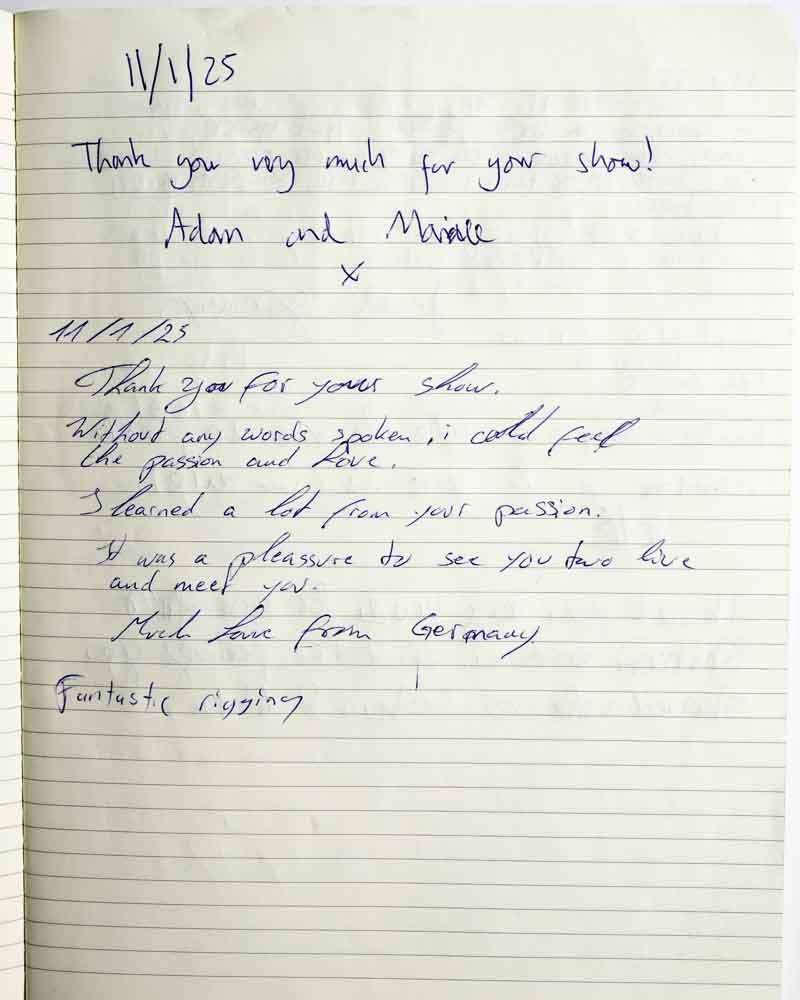 11/1/25
Thank you very much for your show!
Adam and
x
11/1/25
Thank you for your show.
Without any words spoken, i could feel
the passion and love.
I learned a lot from your passion.
It was a pleassure to see you two live
and meet you.
Much Love from Germany
Fantastic rigging